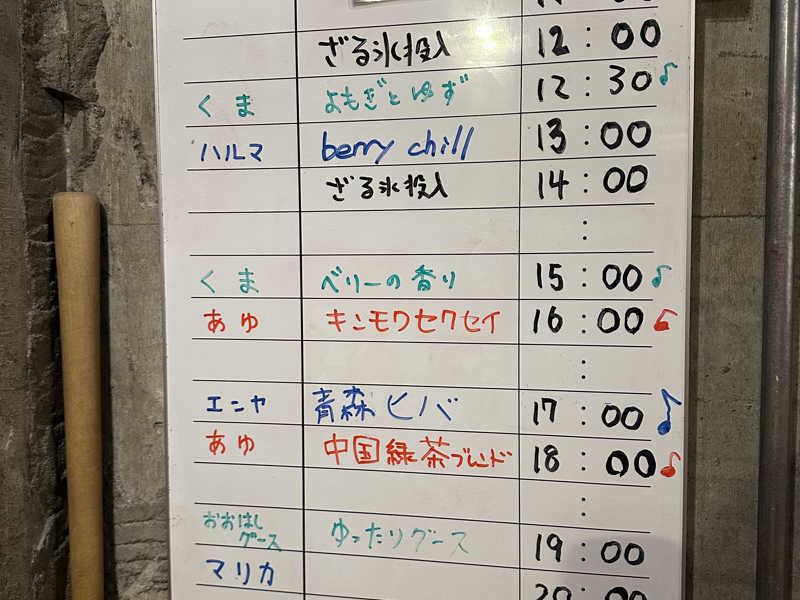 ざる氷投入 12:00
くま よもぎとゆず 12:30♪
ハルマ berry chill 13:00
ざる氷投入 14:00
:
くま ベリーの香り 15:00♪
あゆ キンモクセクセイ 16:00♪
:
エニヤ 青森ヒバ 17:00♪
あゆ 中国緑茶ブレンド 18:00♪
:
おおはしグース ゆったりグース 19:00
マリカ 20:00